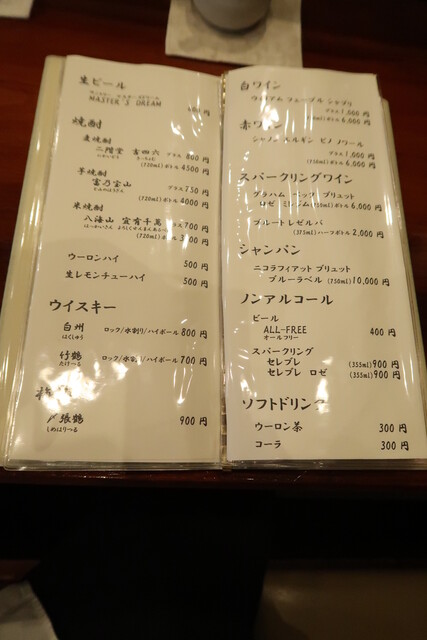 生ビール
MASTER'S DREAM
焼酎
麦焼酎
二階堂 吉四六 グラス 800円
(720ml)ボトル 4500
芋焼酎
富乃宝山 グラス 750
とみのほうざん
(720ml)ボトル 4000
米焼酎
八海山 宜有千萬 グラス 700
はっかいさん よろしくせんまんあるべし
(720ml)ボトル
ウーロンハイ 500円
生レモンチューハイ 500円
ウイスキー
白州 ロック/水割り/ハイボール 800円
はくしゅう
竹鶴 ロック/水割り/ハイボール 700円
たけつる
〆張鶴 900円
しめはりつる
白ワイン
ウィリアム フェーブル シャブリ
グラス 1,000円
(750ml)ボトル 6,000
赤ワイン
ピノ ノワール
グラス 1,000円
(750ml)ボトル 6,000
スパークリングワイン
グラハム ベック ブリュット
ロゼ (750ml)ボトル 6,000
ブルートレゼルバ
(375ml)ハーフボトル 2,000
シャンパン
ニコラフィアット ブリュット
ブルーラベル (750ml) 10,000
ノンアルコール
ビール
ALL-FREE 400円
オールフリー
スパークリング
セレブレ (355ml) 900円
セレブレ ロゼ (355ml) 900円
ソフトドリンク
ウーロン茶 300円
コーラ 300円